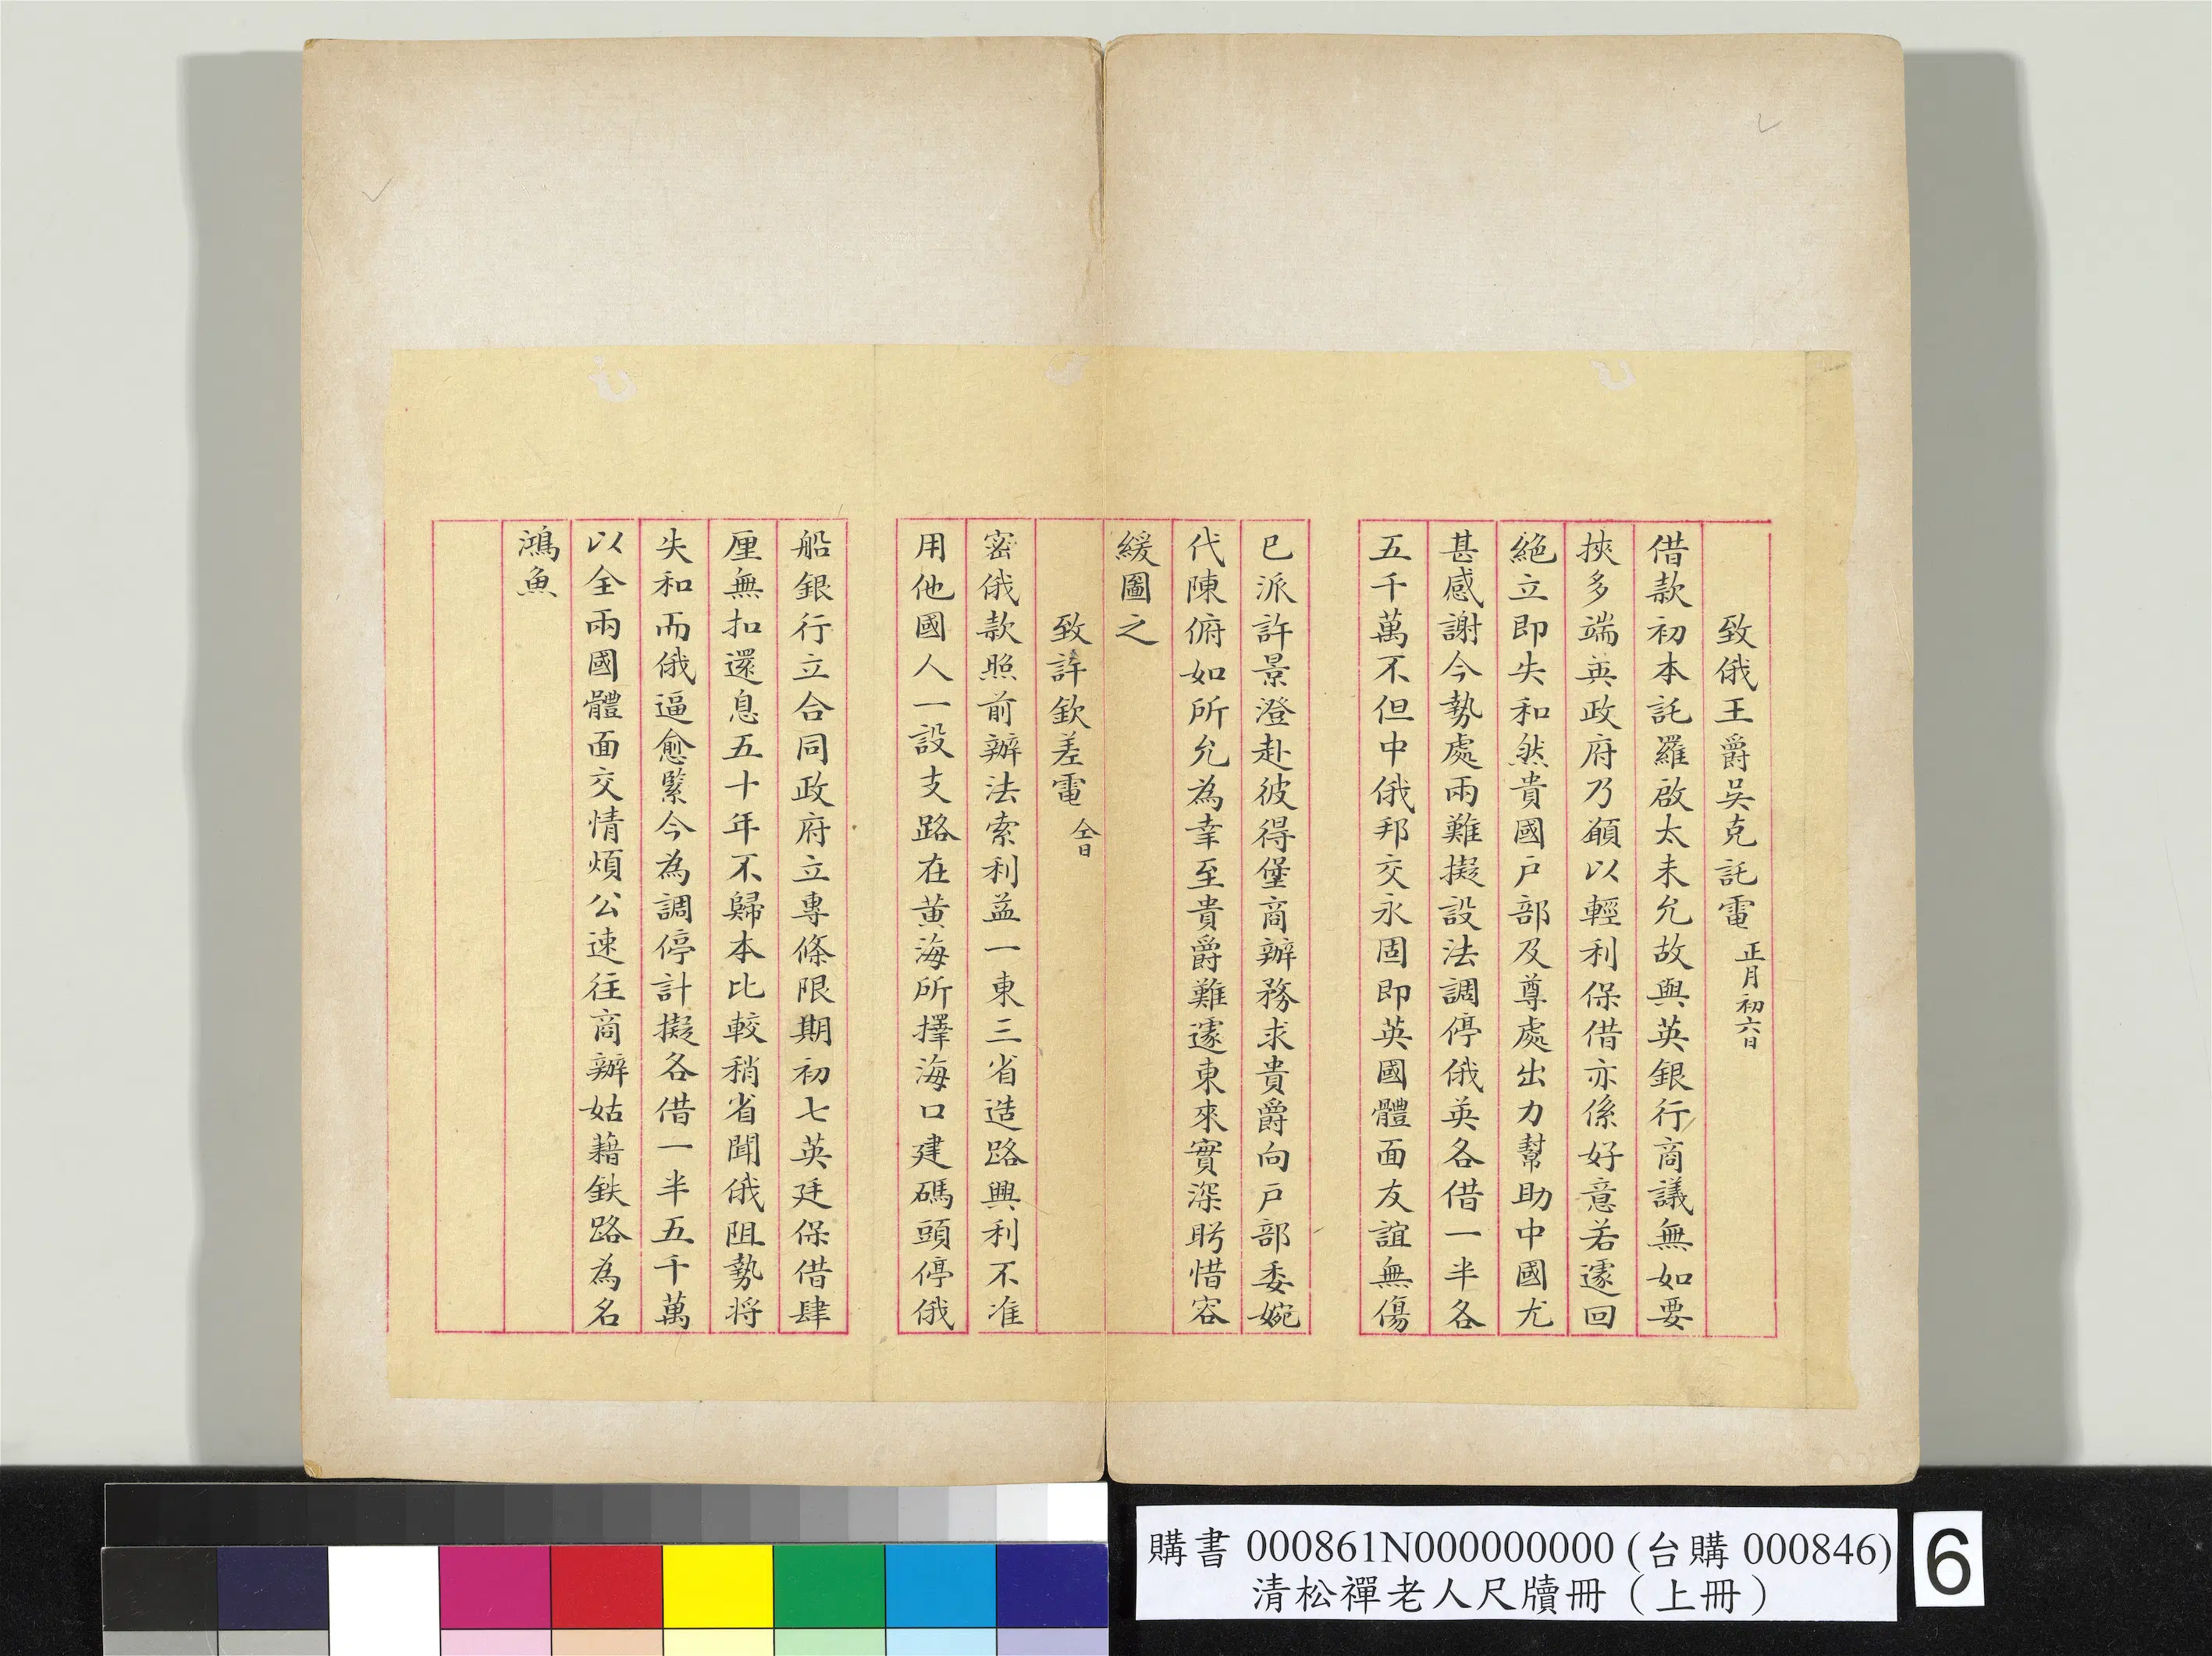 致俄王爵吳克託電 正月初六日
借款初本託羅啟太未允故與英銀行商議無如要
挾多端英政府乃願以輕利保借亦係好意若遽回
絕立即失和然貴國戶部及尊處出力幫助中國尤
甚感謝今勢處兩難擬設法調停俄英各借一半各
五千萬不但中俄邦交永固即英國體面友誼無傷
已派許景澄赴彼得堡商辦務求貴爵向戶部委婉
代陳俯如所允為幸至貴爵難遽東來實深盻惜容
緩圖之
致許欽差電 仝日
密俄款照前辦法索利益一東三省造路興利不准
用他國人一設支路在黃海所擇海口建碼頭停俄
船銀行立合同政府立專條限期初七英廷保借肆
厘無扣還息五十年不歸本比較稍省聞俄阻勢將
失和而俄逼愈緊今為調停計擬各借一半五千萬
以全兩國體面交情煩公速往商辦姑藉鉄路為名
鴻魚
購書 000861N000000000 (台購 000846)
清松禪老人尺牘冊（上冊）
6